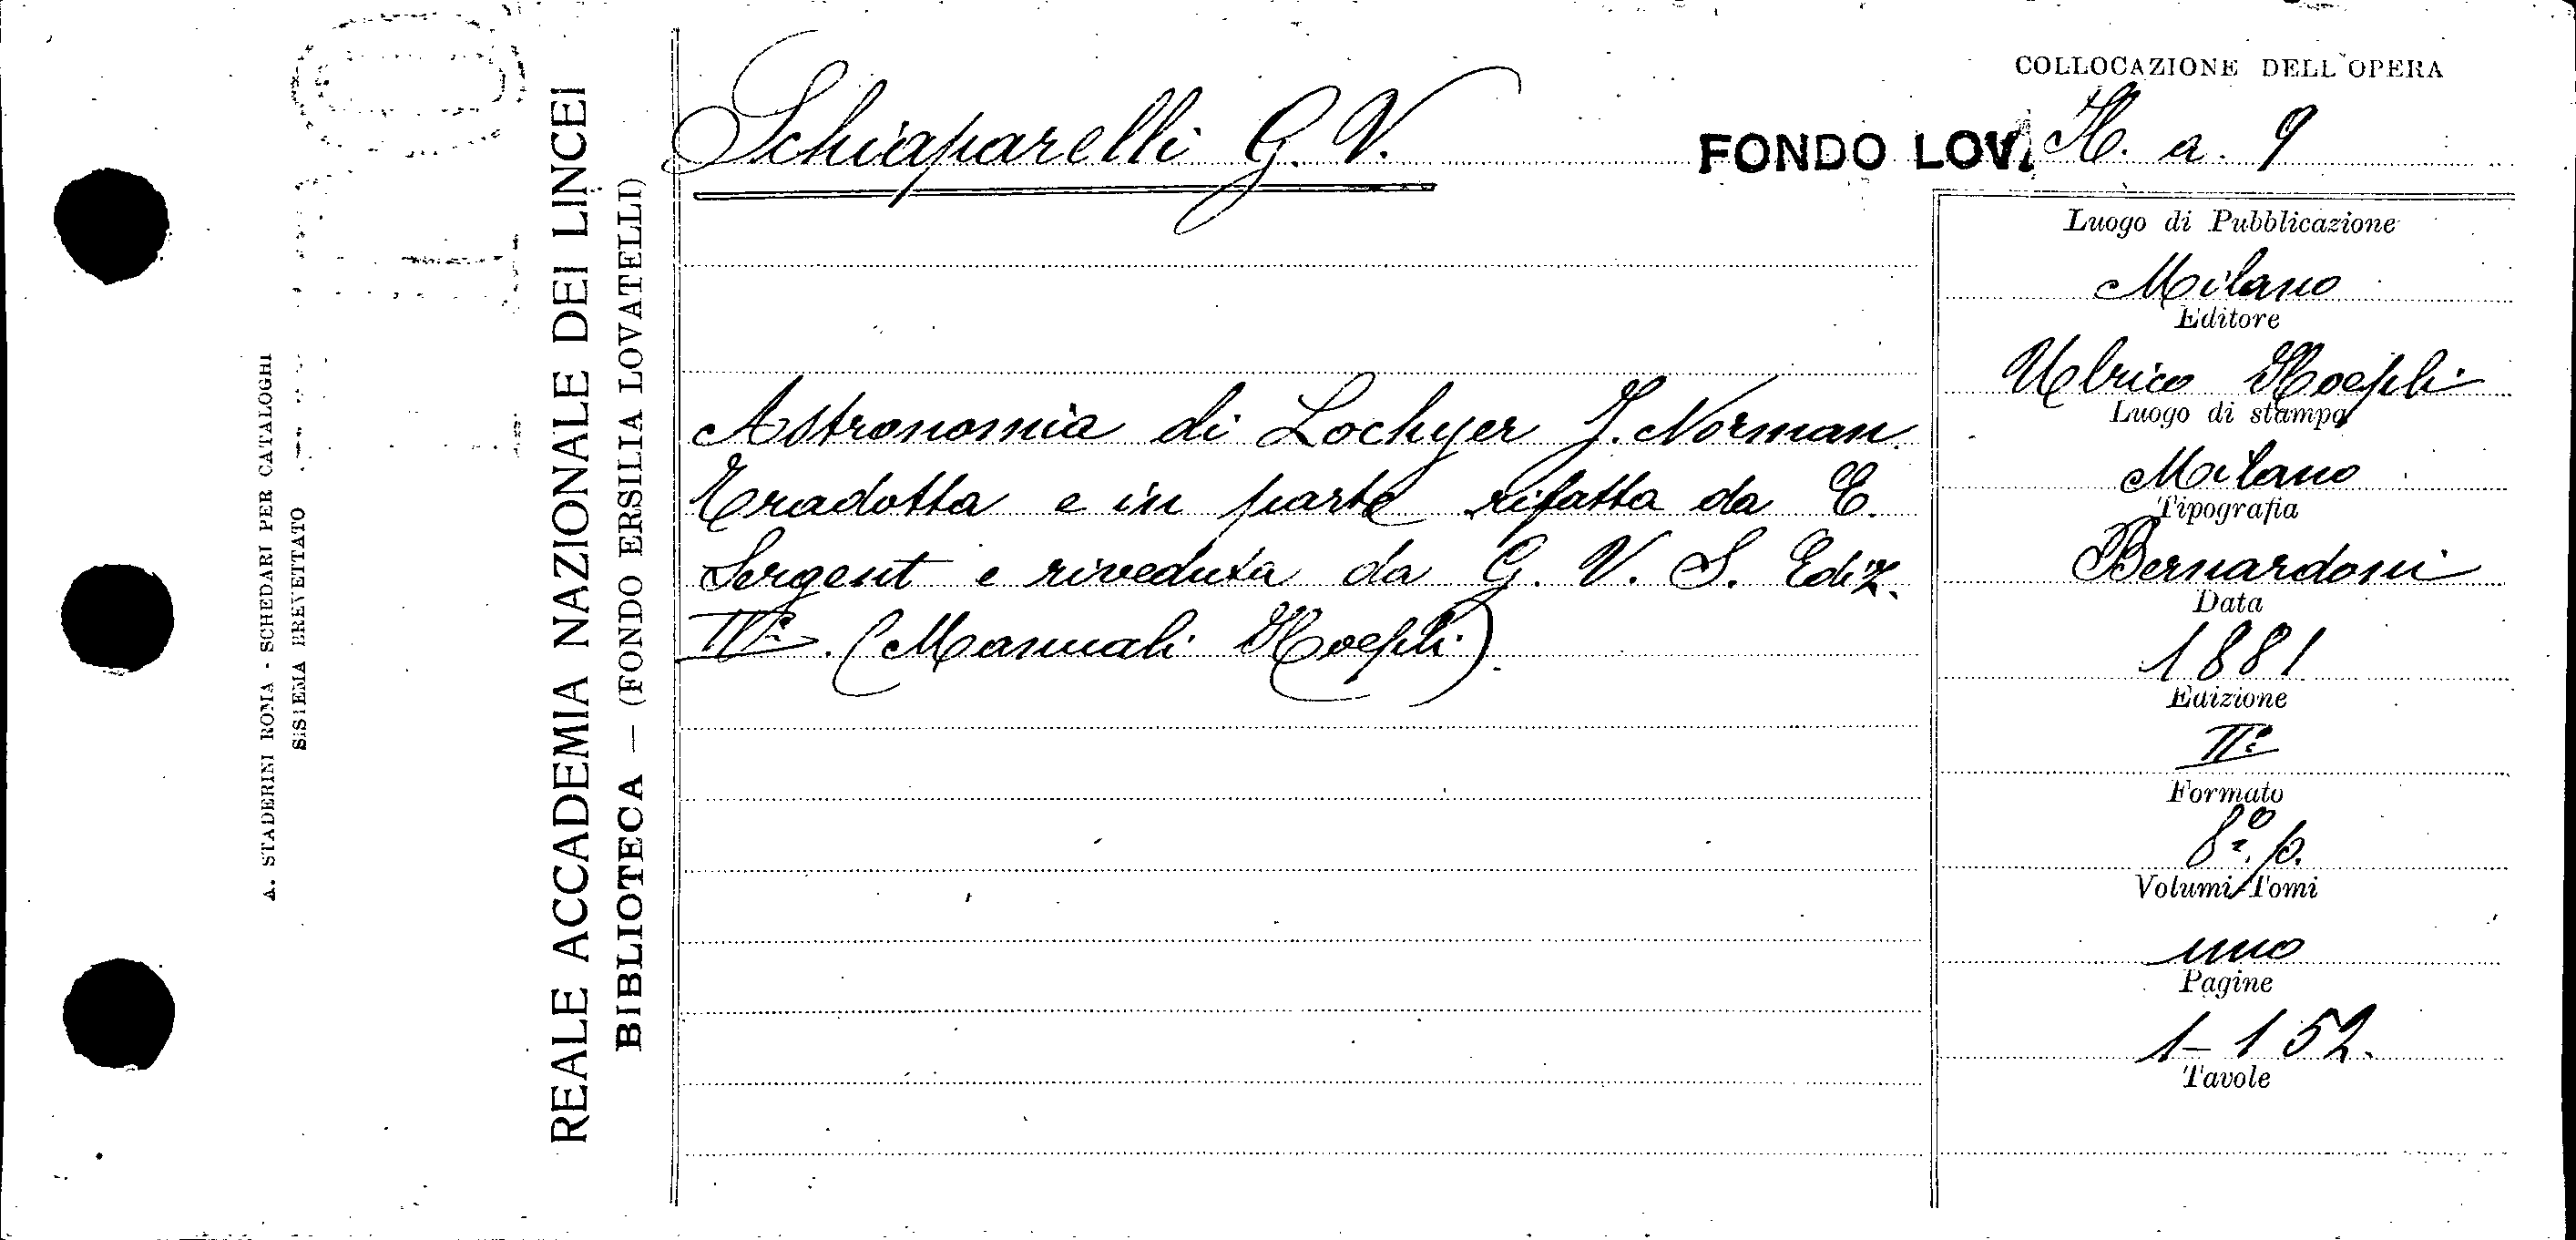 COLLOCAZIONE DELL'OPERA
Schiaparelli G. V.
FONDO LOV. H. a. 9
Astronomia di Lochyer J. Norman
Tradotta e in parte rifatta da E.
Sergent e riveduta da G. V. S. Ediz.
IIª. (Manuali Hoepli).
Luogo di Pubblicazione
Milano
Editore
Ulrico Hoepli
Luogo di stampa
Milano
Tipografia
Bernardoni
Data
1881
Edizione
IIª
Formato
8º. p.
Volumi/Tomi
uno
Pagine
1-152.
Tavole
REALE ACCADEMIA NAZIONALE DEI LINCEI
BIBLIOTECA — (FONDO ERSILIA LOVATELLI)
A. STADERINI ROMA - SCHEDARI PER CATALOGHI
SISTEMA BREVETTATO